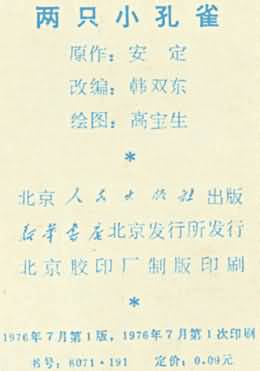 两只小孔雀
原作：安 定
改编：韩双东
绘图：高宝生
*
北京人民出版社出版
新华书店北京发行所发行
北京胶印厂制版印刷
*
1976年7月第1版，1976年7月第1次印刷
书号：8071·191 定价：0.09元